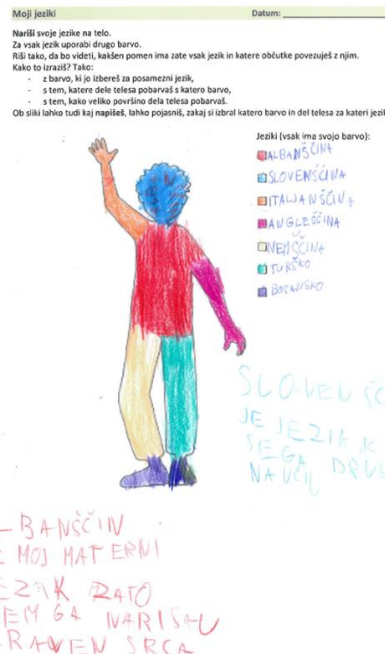 Moji jeziki Datum:
Nariši svoje jezike na telo.
Za vsak jezik uporabi drugo barvo.
Riši tako, da bo videti, kakšen pomen ima zate vsak jezik in katere občutke povezuješ z njim.
Kako to izraziš? Tako:
- z barvo, ki jo izbereš za posamezni jezik,
- s tem, katere dele telesa pobarvaš s katero barvo,
- s tem, kako veliko površino dela telesa pobarvaš.
Ob sliki lahko tudi kaj napišeš, lahko pojasniš, zakaj si izbral katero barvo in del telesa za kateri jezik
Jeziki (vsak ima svojo barvo):
ALBANŠČINA
SLOVENŠČINA
ITALJANŠČINA
ANGLEŠČINA
NEMŠČINA
TURŠKO
BOSANSKO
SLOVENŠČ
JE JEZIK K
SEGA DRUG
NAUČIL
-BANŠČIN
E MOJ MATERNI
EZIK ZATO
EM GA NARISAU
RAVEN SRCA